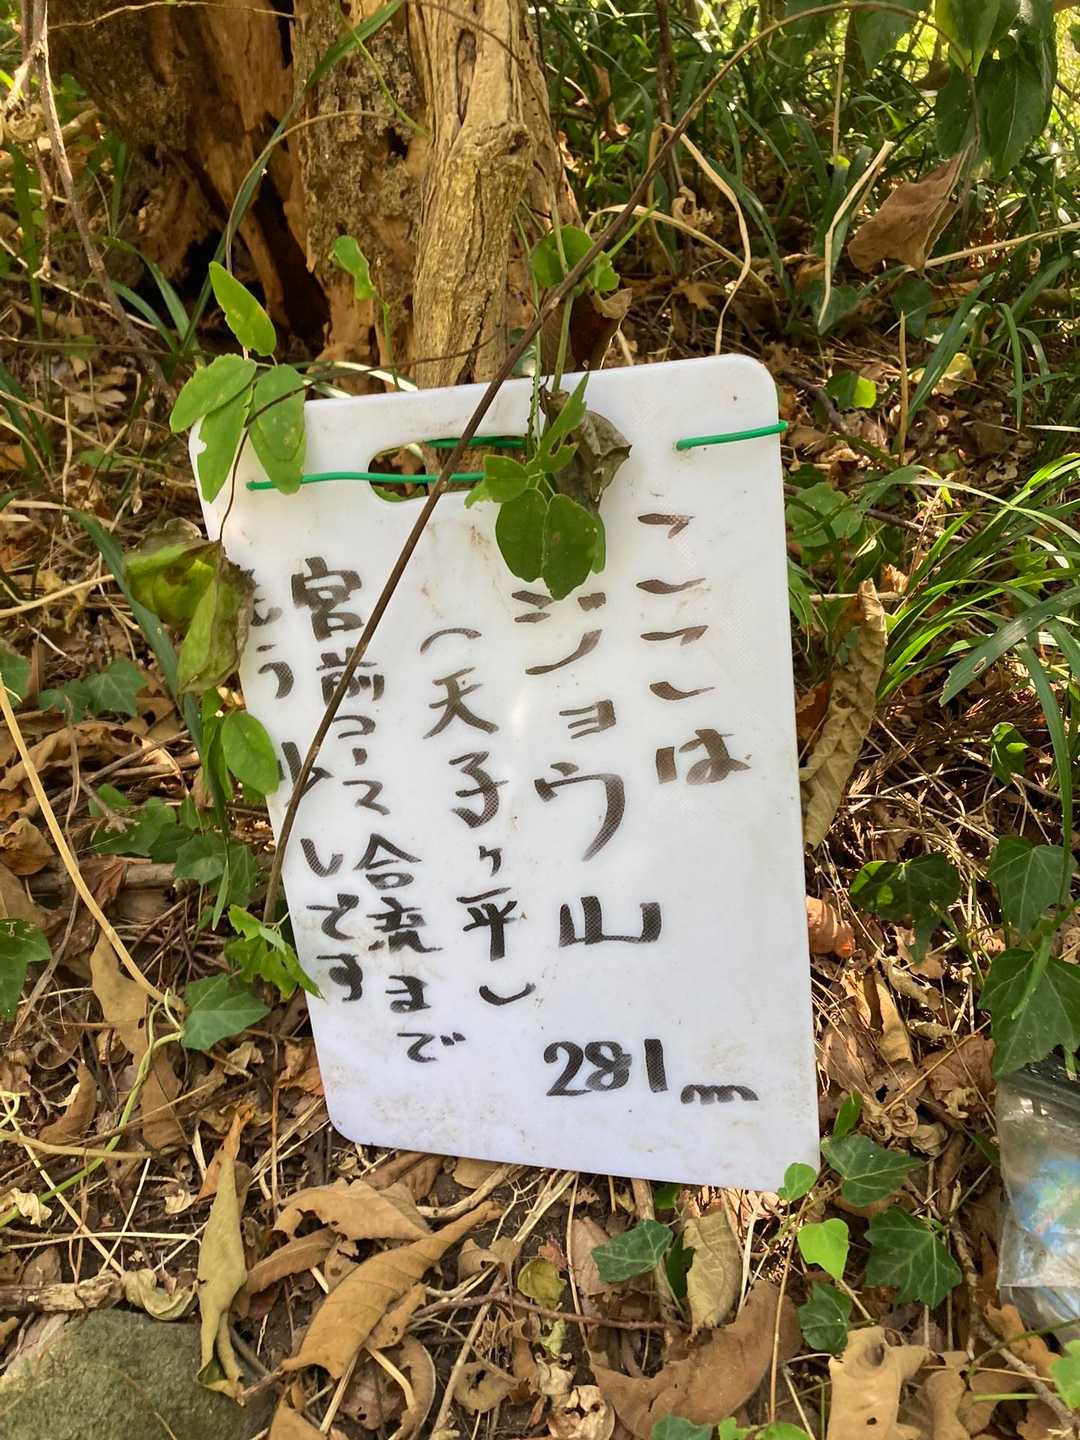 ここは
ジョウ山
281m
(天子ヶ平)
宮前コース合流まで
もう少しです